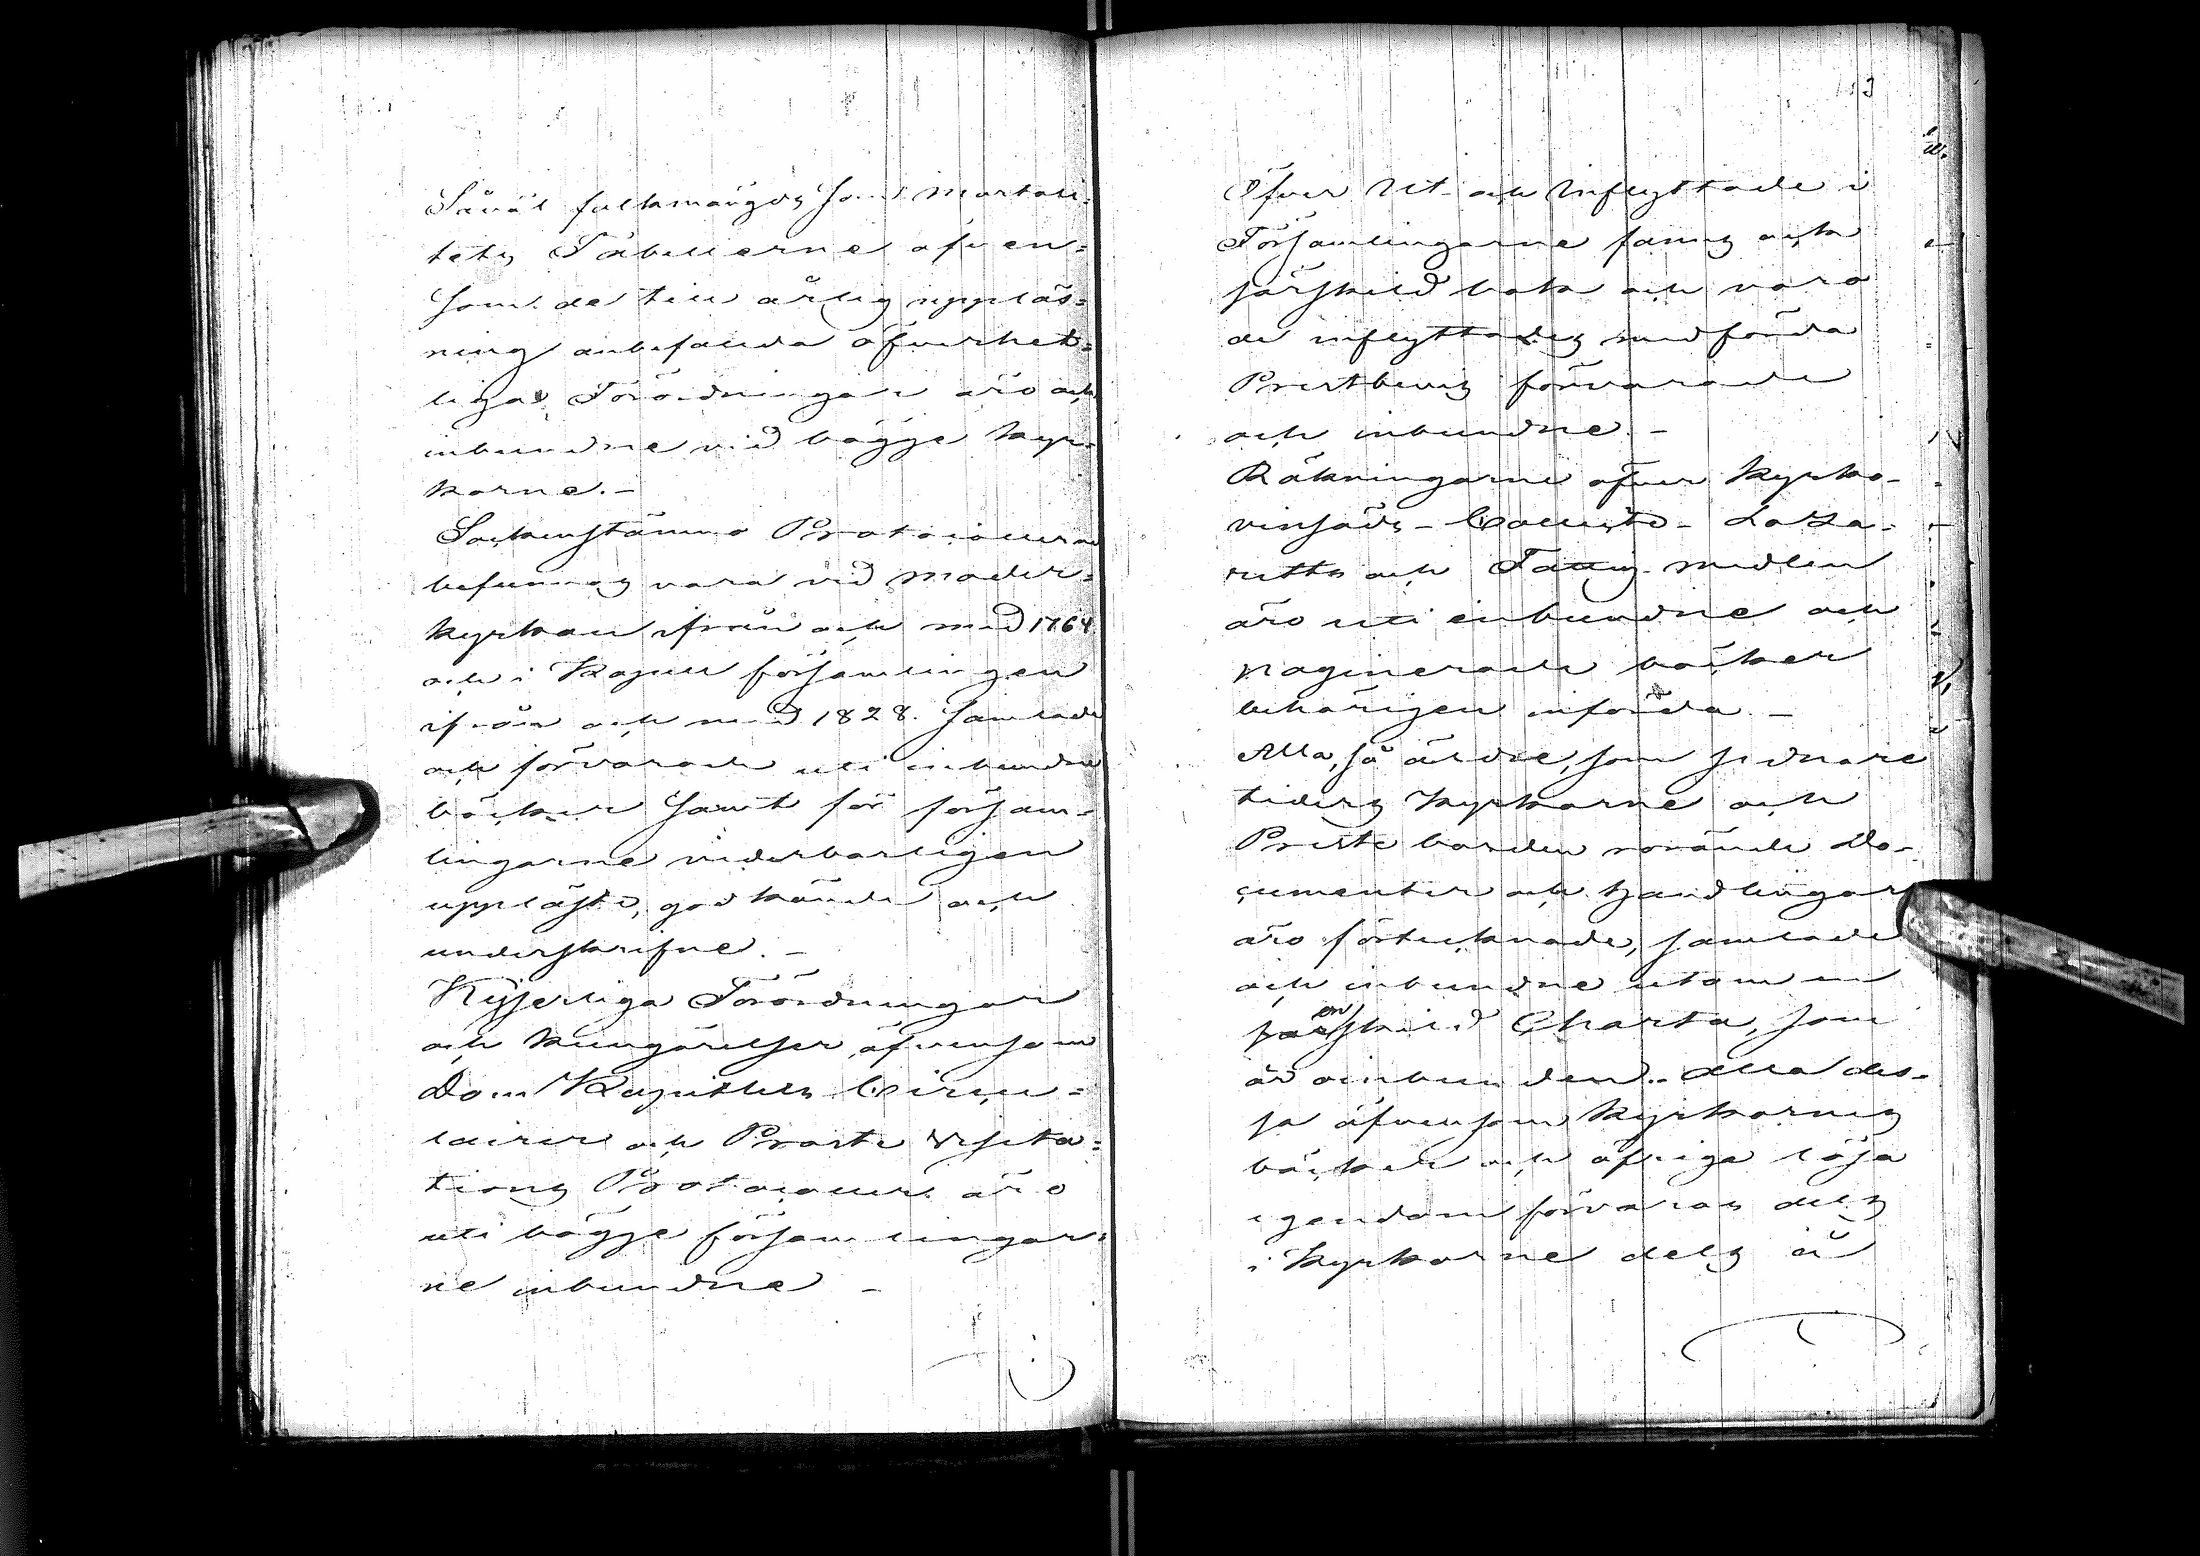 Såväl folkmängds som Mortali-
tets Tabellerne äfven-
som de till årlig uppläs-
ning anbefallda öfverhet-
liga Förordningar äro och
inbundne vid bägge kyr-
korne. -
Sockenstämmo Protocollerne
befunnos vara vid moder-
kyrkan ifrån och med 1764
och i Kapell församlingen
ifrån och med 1828. samlade
och förvarade uti inbundne
böcker samt för försam-
lingarne vederbörligen
uppläste, godkände och
underskrifne. -
Kejserliga Förordningar
och kungörelser äfvensom
Dom Kapitlets Circu-
lairer och Prosте Visita-
tions Protocoller äro
uti bägge församlingar-
ne inbundne -
113
Öfver Ut- och Inflyttade i
Församlingarne fanns och
särskild bok och voro
de inflyttades medförda
Prestbevis förvarade
och inbundne. -
Räkningarne öfver kyrko-
vinsäds - Collect - Laza-
retts och Fattig medlen
äro uti inbundne och
paginerade böcker
behörigen införda -
Alla, så äldre, som sednare
tiders kyrkorne och
Preste borden rörande Do-
cumenter och Handlingar
äro förtecknade, samlade
och inbundne utom en
särskild Charta, som
är oinbunden. Alla des-
sa äfvensom kyrkornes
böcker och öfriga lösa
egendom förvaras dels
i kyrkorne dels å